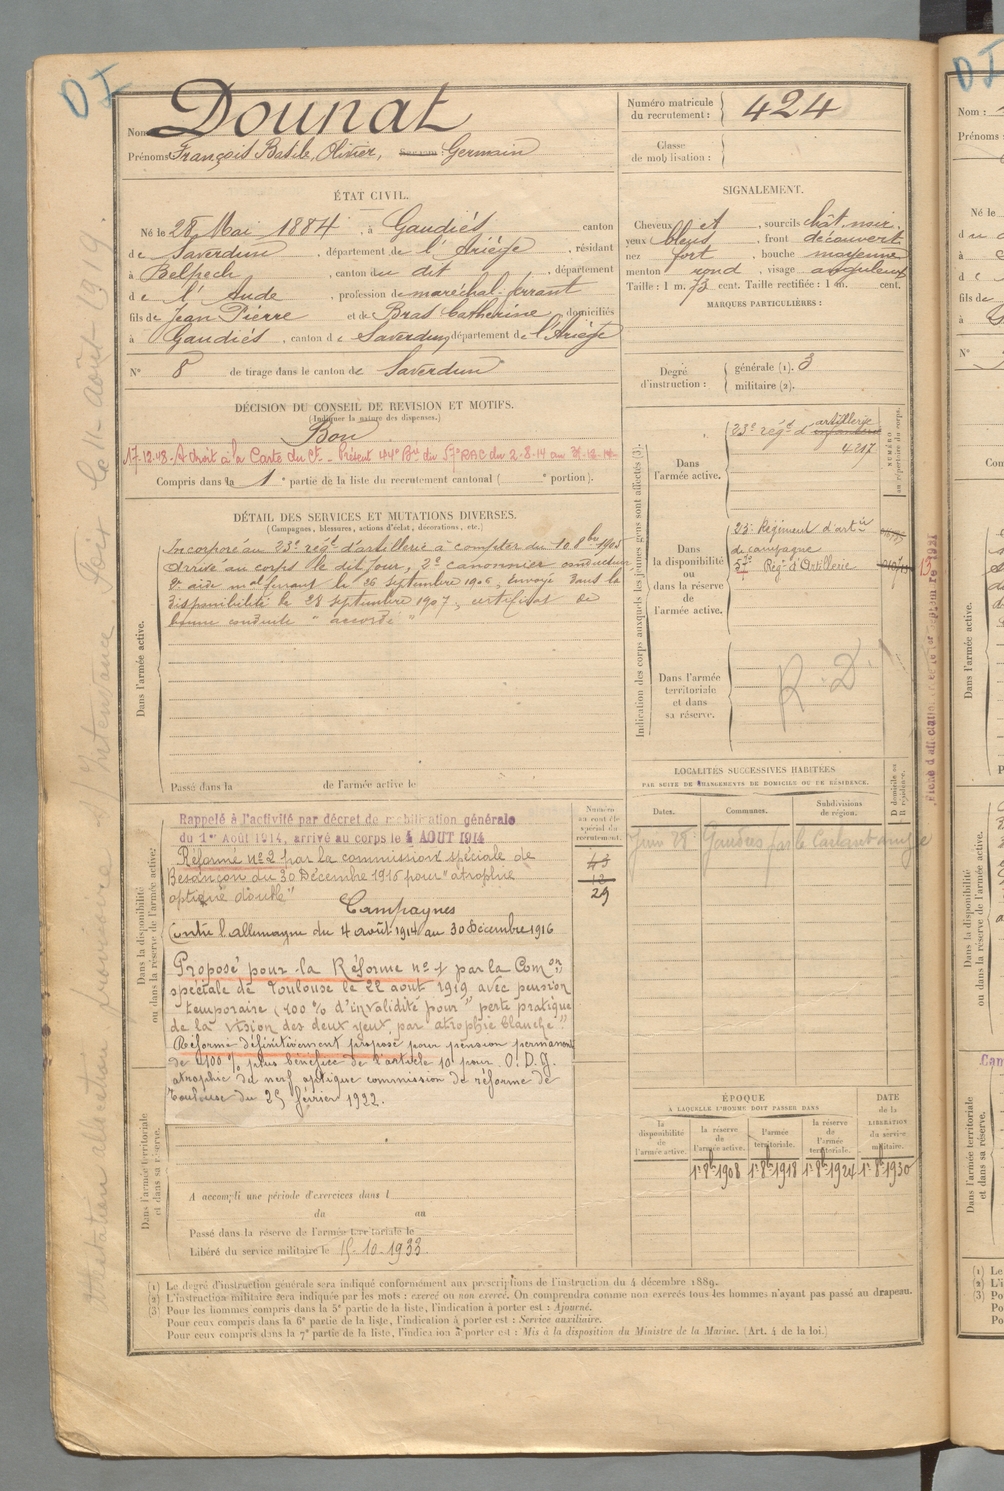 D I
Nom Dounat
Prénoms François Basile, Olivier, Germain
Numéro matricule du recrutement : 424
Classe de mobilisation :
ÉTAT CIVIL.
Né le 28 Mai 1884, à Gaudiés canton
de Saverdun, département de l'Ariège, résidant
à Belpech, canton du dit, département
de l'Aude, profession de maréchal-ferrant
fils de Jean Pierre et de Bras Catherine, domiciliés
à Gaudiés, canton de Saverdun, département de l'Ariège
N° 8 de tirage dans le canton de Saverdun
SIGNALEMENT.
Cheveux et, sourcils chât. noir.
yeux bleus, front découvert
nez fort, bouche moyenne
menton rond, visage anguleux
Taille : 1 m. 73 cent. Taille rectifiée : 1 m. cent.
MARQUES PARTICULIÈRES :
Degré d'instruction :
générale (1). 3
militaire (2).
DÉCISION DU CONSEIL DE REVISION ET MOTIFS.
(Indiquer la nature des dispenses.)
Bon
17.12.48. A droit à la Carte du Ct. - Présent 44e Bie du 57e RAC du 2-8-14 au
Compris dans la 1e partie de la liste du recrutement cantonal ( e portion).
DÉTAIL DES SERVICES ET MUTATIONS DIVERSES.
(Campagnes, blessures, actions d'éclat, décorations, etc.)
Dans l'armée active.
Incorporé au 23e régt d'artillerie à compter du 10 8bre 1905
Arrivé au corps le dit jour, 2e canonnier conducteur
le 26 septembre 1906, envoyé dans la
disponibilité le 28 septembre 1907, certificat de
bonne conduite "accordé"
Passé dans la de l'armée active le
Dans la disponibilité ou dans la réserve de l'armée active.
Rappelé à l'activité par décret de mobilisation générale
du 1er Août 1914, arrivé au corps le 4 AOUT 1914
Réforme n° 2 par la commission spéciale de
Besançon du 30 Décembre 1916 pour "atrophie
optique double"
Campagnes
Contre l'Allemagne du 4 août 1914 au 30 Décembre 1916
Proposé pour la Réforme n° 1 par la Comon
spéciale de Toulouse le 22 aout 1919 avec pension
temporaire (100 % d'invalidité pour "perte pratique
de la vision des deux yeux, par atrophie blanche"
Réformé définitivement proposé pour pension permanente
de 100 % plus bénéfice de l'article 10 pour O. D. G.
atrophie du nerf optique commission de réforme de
Toulouse du 25 février 1922.
Numéro au contrôle spécial du recrutement.
43
12
29
Dans l'armée territoriale et dans sa réserve.
A accompli une période d'exercices dans l
du au
Passé dans la réserve de l'armée territoriale le
Libéré du service militaire le 15-10-1933
Indication des corps auxquels les jeunes gens sont affectés (3).
Dans l'armée active.
23e régt d'infanterie artillerie
4217
NUMÉRO au répertoire du corps.
Dans la disponibilité ou dans la réserve de l'armée active.
23e Régiment d'artie
de campagne
57e Régt d'Artillerie
Dans l'armée territoriale et dans sa réserve.
R. D.
LOCALITÉS SUCCESSIVES HABITÉES
PAR SUITE DE CHANGEMENTS DE DOMICILE OU DE RÉSIDENCE.
Dates. Communes. Subdivisions de région. D domicile ou R résidence.
Juin 28 Gaudiés par le
ÉPOQUE
À LAQUELLE L'HOMME DOIT PASSER DANS
la disponibilité de l'armée active.
la réserve de l'armée active.
l'armée territoriale.
la réserve de l'armée territoriale.
DATE de la LIBÉRATION du service militaire.
1er 8bre 1908 1er 8bre 1918 1er 8bre 1924 1er 8bre 1930
(1) Le degré d'instruction générale sera indiqué conformément aux prescriptions de l'instruction du 4 décembre 1889.
(2) L'instruction militaire sera indiquée par les mots : exercé ou non exercé. On comprendra comme non exercés tous les hommes n'ayant pas passé au drapeau.
(3) Pour les hommes compris dans la 5e partie de la liste, l'indication à porter est : Ajourné.
Pour ceux compris dans la 6e partie de la liste, l'indication à porter est : Service auxiliaire.
Pour ceux compris dans la 7e partie de la liste, l'indication à porter est : Mis à la disposition du Ministre de la Marine. (Art. 4 de la loi.)
allocation provisoire Intendance Foix le 11 août 1919.